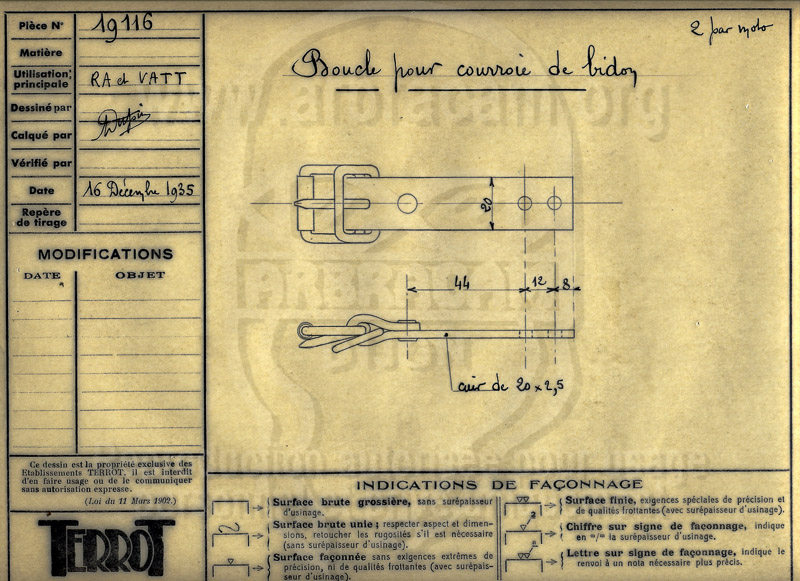 Pièce N° 19116
Matière
Utilisation principale RA et VATT
Dessiné par
Calqué par
Vérifié par
Date 16 Décembre 1935
Repère de tirage
MODIFICATIONS
DATE OBJET
Ce dessin est la propriété exclusive des
Etablissements TERROT, il est interdit
d'en faire usage ou de le communiquer
sans autorisation expresse.
(Loi du 11 Mars 1902.)
TERROT
2 par moto
Boucle pour courroie de bidon
20
44 12 8
cuir de 20 x 2,5
INDICATIONS DE FAÇONNAGE
Surface brute grossière, sans surépaisseur
d'usinage.
Surface brute unie ; respecter aspect et dimen-
sions, retoucher les rugosités s'il est nécessaire
(sans surépaisseur d'usinage).
Surface façonnée sans exigences extrêmes de
précision, ni de qualités frottantes (avec surépais-
seur d'usinage).
Surface finie, exigences spéciales de précision et
de qualités frottantes (avec surépaisseur d'usinage).
Chiffre sur signe de façonnage, indique
en m/m la surépaisseur d'usinage.
Lettre sur signe de façonnage, indique le
renvoi à un nota nécessaire plus précis.
www.arbracam.org
ARBRACAM